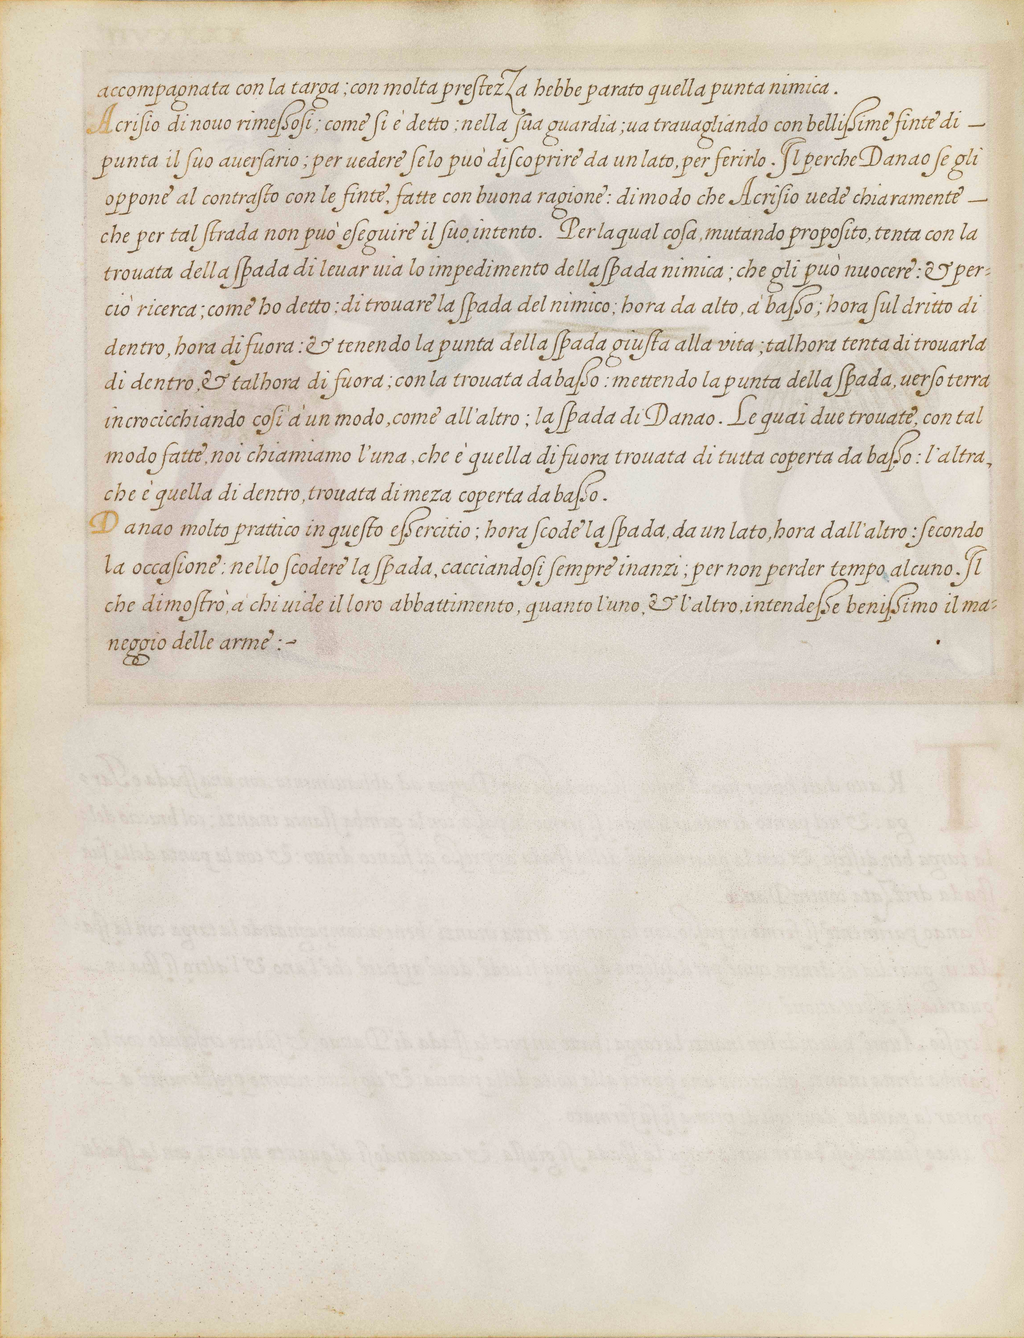 accompagnata con la targa ; con molta prestezza hebbe parato quella punta nimica .
Acrisio di nouo rimessosi ; come si è detto ; nella sua guardia ; ua trauagliando con bellissime finte di —
punta il suo auersario ; per uedere se lo può discoprire da un lato, per ferirlo . Il perche Danao se gli
oppone al contrasto con le finte, fatte con buona ragione : di modo che Acrisio uede chiaramente —
che per tal strada non può eseguire il suo intento . Per la qual cosa, mutando proposito, tenta con la
trouata della spada di leuar uia lo impedimento della spada nimica ; che gli può nuocere : & per=
ciò ricerca ; come ho detto ; di trouare la spada del nimico ; hora da alto, à basso ; hora sul dritto di
dentro, hora di fuora : & tenendo la punta della spada giusta alla vita ; talhora tenta di trouarla
di dentro, & talhora di fuora ; con la trouata da basso : mettendo la punta della spada, uerso terra
incrocicchiando così à un modo, come all'altro ; la spada di Danao . Le quai due trouate, con tal
modo fatte, noi chiamiamo l'una, che è quella di fuora trouata di tutta coperta da basso : l'altra,
che è quella di dentro, trouata di meza coperta da basso .
Danao molto prattico in questo essercitio ; hora scode la spada, da un lato, hora dall'altro : secondo
la occasione : nello scodere la spada, cacciandosi sempre inanzi ; per non perder tempo alcuno . Il
che dimostrò, a chi uide il loro abbattimento, quanto l'uno, & l'altro, intendesse benissimo il ma=
neggio delle arme : ~